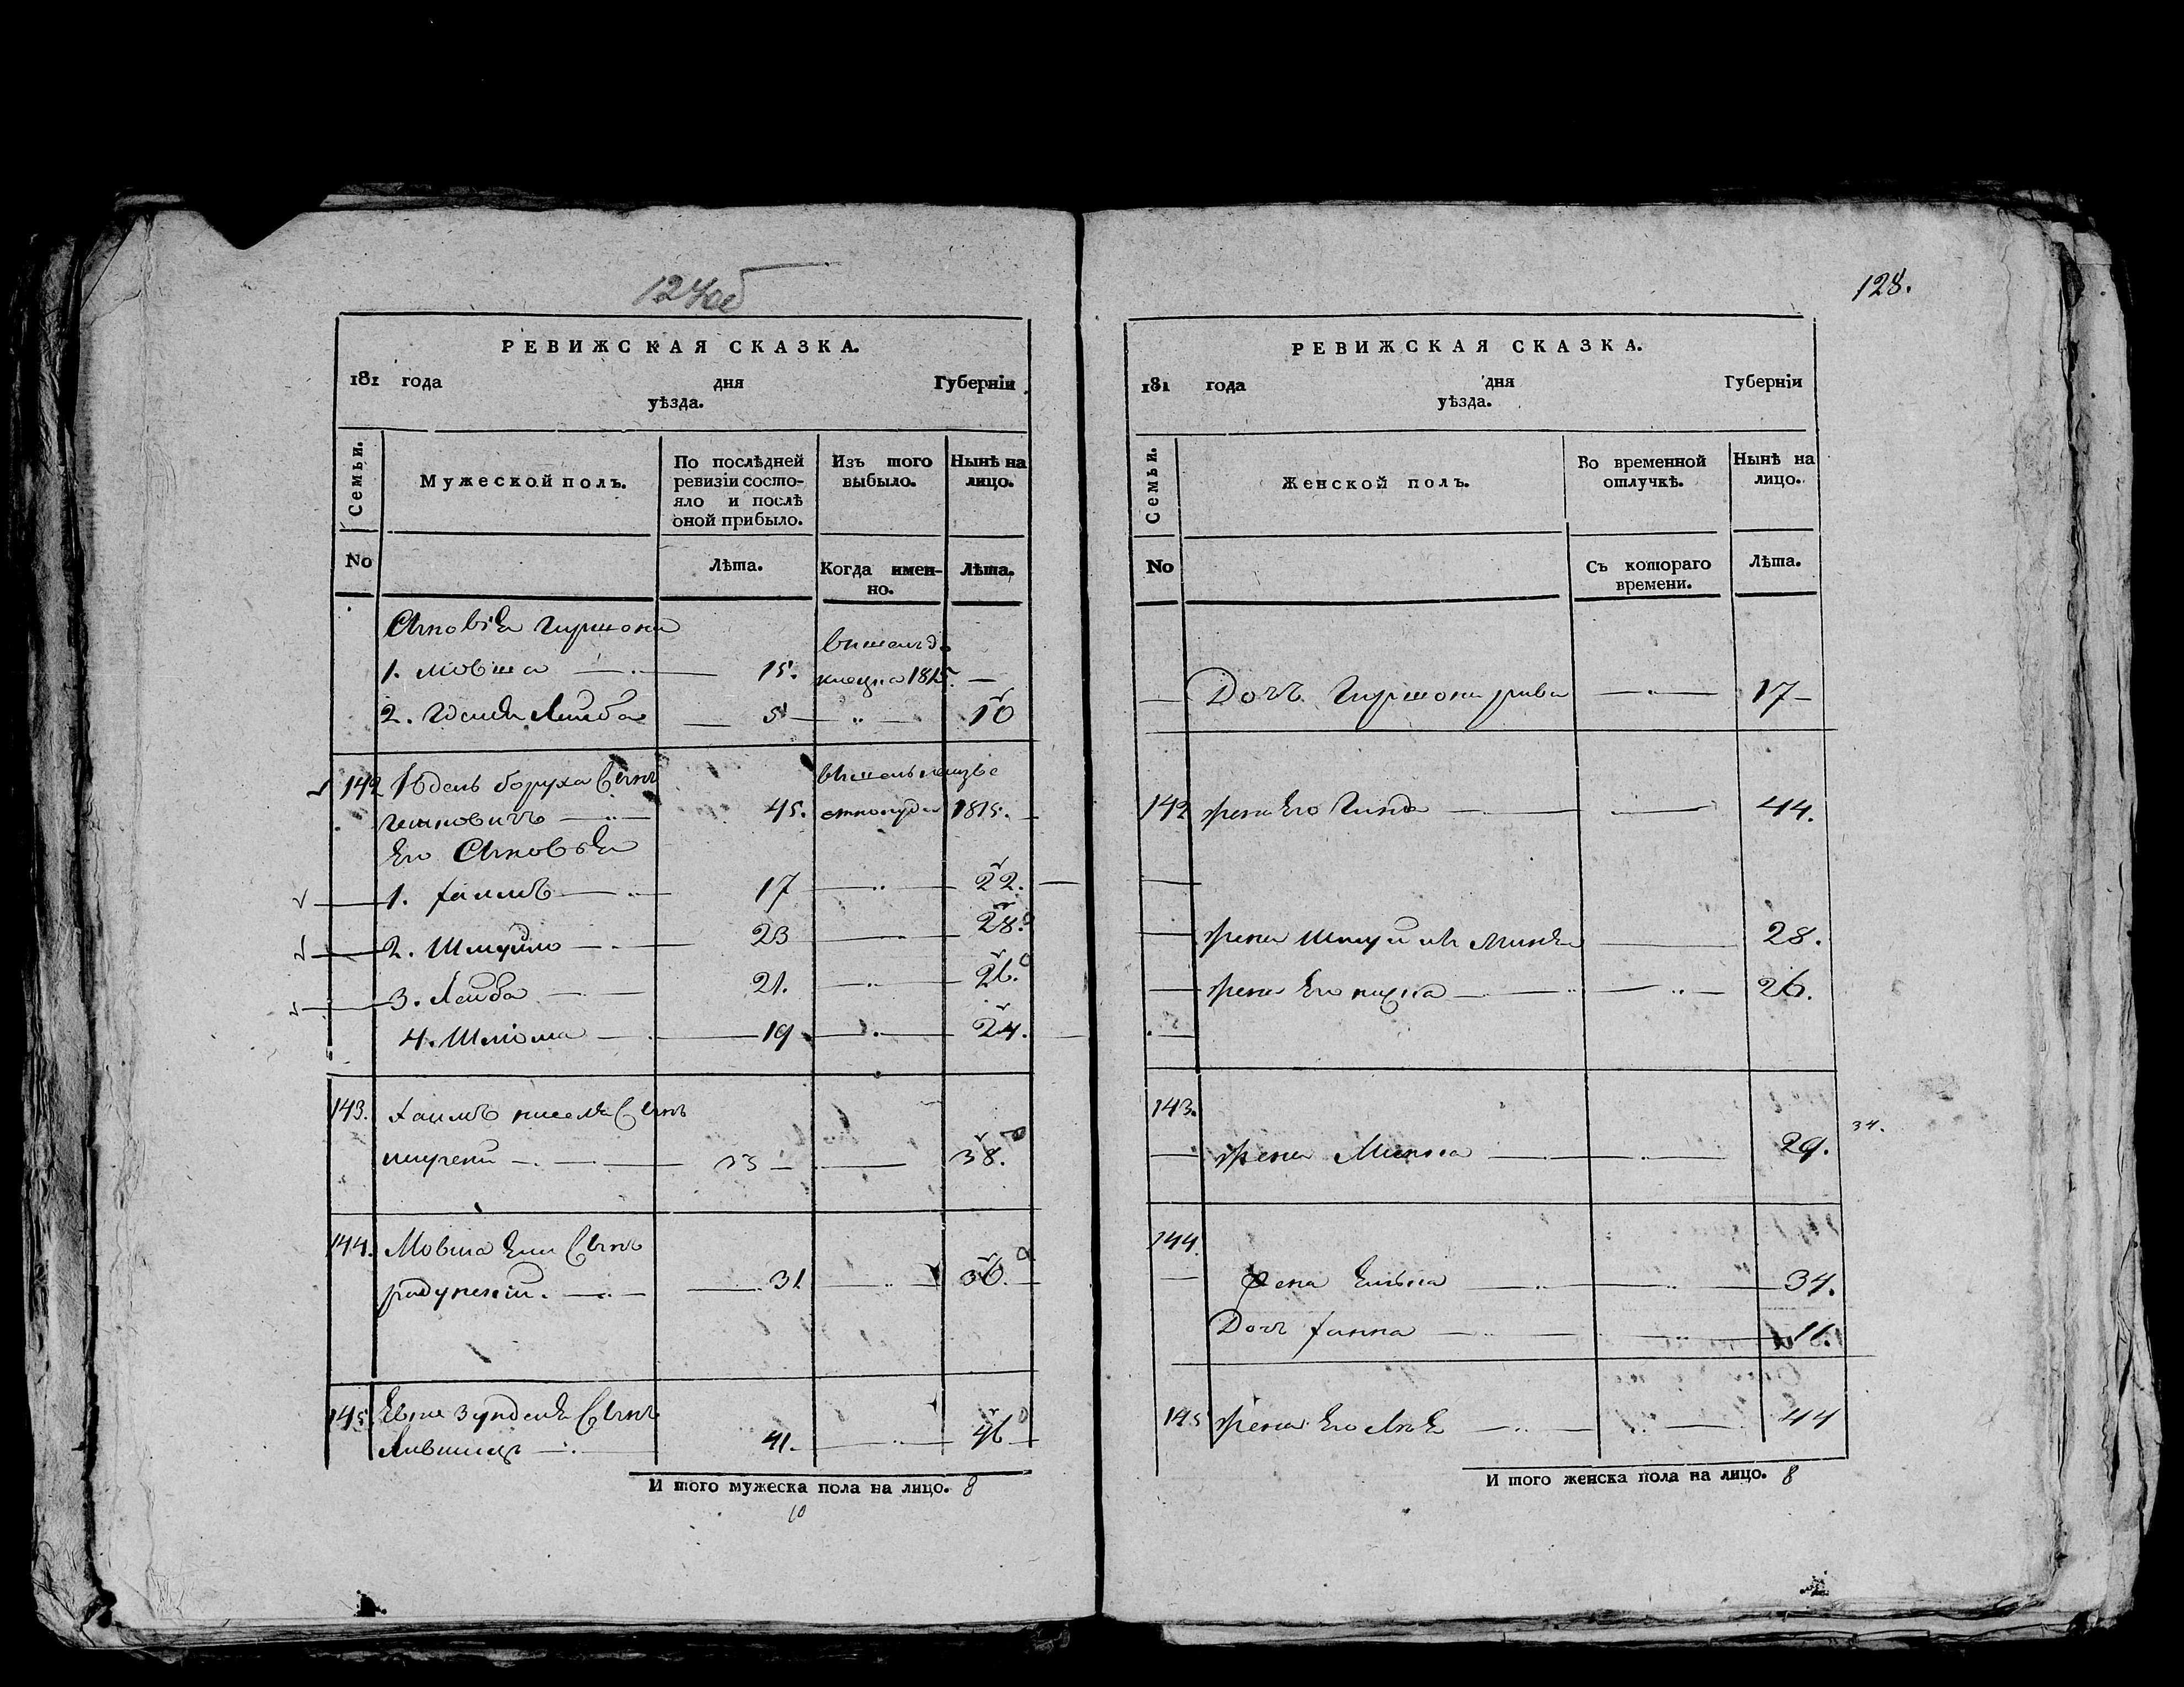 127об
РЕВИЖСКАЯ СКАЗКА.
181 года дня Губерніи
уѣзда.
Семьи.
Мужеской полъ.
По послѣдней ревизіи состояло и послѣ оной прибыло.
Изъ того выбыло.
Нынѣ на лицо.
No
Лѣта.
Когда именно.
Лѣта.
Сыновья Гиршона
1. Мовша 15. 1815. —
2. Лейба 5 10
142 Юдель боруха Сынъ
45. 1815.
Его Сыновья
1. Хаимъ 17 22.
2. Шмуйло 23 28.
3. Лейба 21. 26.
4. Шліома 19 24.
143. Хаимъ Сынъ
33 38.
144. Мовша Сынъ
радунскій. 31 36.
145. Зунделя Сынъ
Лившицъ 41. 46
И того мужеска пола на лицо. 8
10
128.
РЕВИЖСКАЯ СКАЗКА.
181 года дня Губерніи
уѣзда.
Семьи.
Женской полъ.
Во временной отлучкѣ.
Нынѣ на лицо.
No
Съ котораго времени.
Лѣта.
Дочь Гиршона рива 17
142 жена Его Гинда 44.
жена Шмуйлы 28.
жена Его 26.
143.
жена 29.
34.
144.
Жена 34.
Дочь Ханна 11.
145 жена Его 44
И того женска пола на лицо. 8